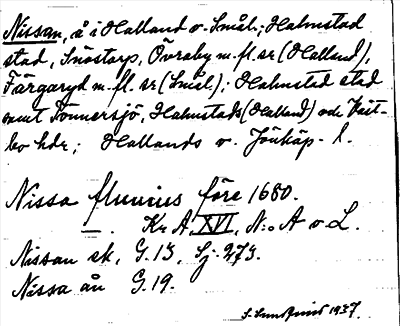 Nissan, å i Halland o. Smål.; Halmstad
stad, Snöstorp, Övraby m. fl. sr (Halland),
Färgaryd m. fl. sr (Smål.); Halmstad stad
samt Tönnersjö, Halmstads (Halland) och Väst-
bo hdr; Hallands o. Jönköp. l.
Nissa fluvius före 1680.
— . Kr A, XVI, N:o A o L.
Nissan sk. G. 13, Sj. 273.
Nissa ån G. 19.
1937.